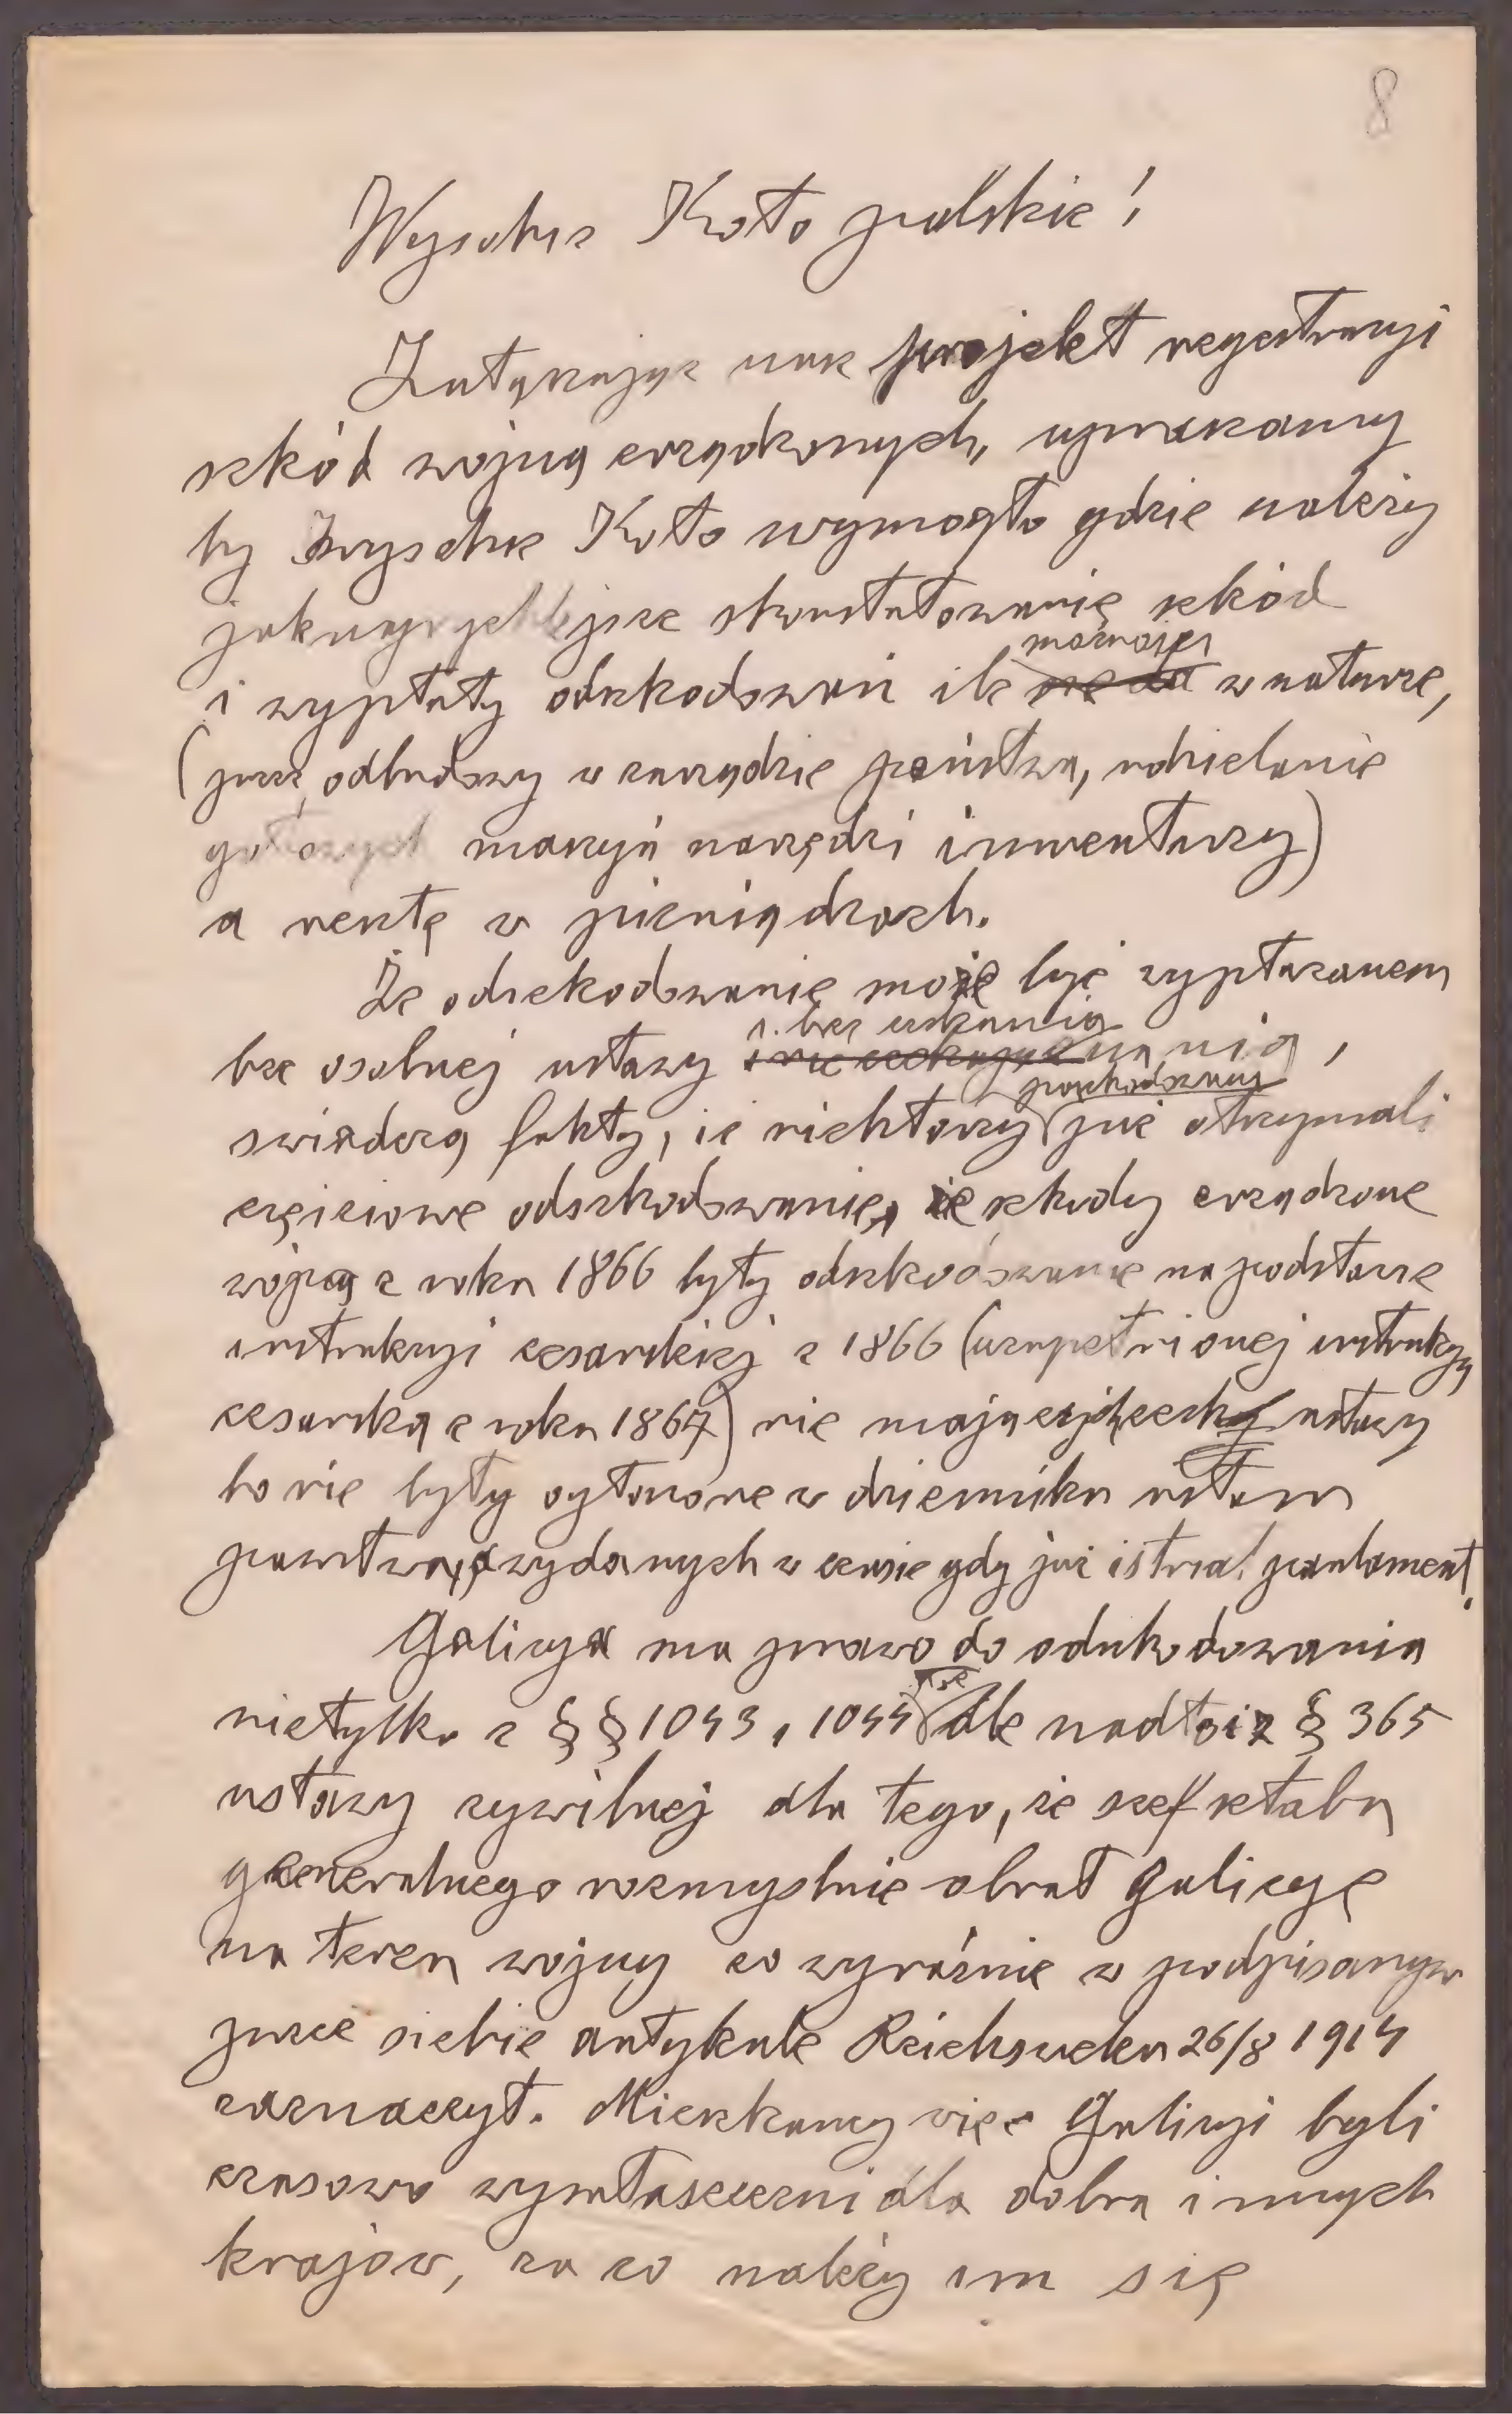 8
Wysokie Koło polskie!
Załączając nasz projekt regestracyi
szkód wojną zrządzonych, upraszamy
by Wysokie Koło wymogło gdzie należy
jaknajrychlejsze skonstatowanie szkód
i wypłaty odszkodowań ile możności w naturze,
(przez odbudowy w zarządzie państwa, udzielanie
gotowych maszyn narzędzi inwentarzy)
a resztę w pieniądzach.
Że odszkodowanie może być wypłacanem
bez osobnej ustawy i bez czekania na nią,
swiadczą fakty, że niektórzy poszkodowani już otrzymali
częściowe odszkodowanie, że szkody zrządzone
wojną z roku 1866 były odszkodowane na podstawie
instrukcyi cesarskiej z 1866 (uzupełnionej instrukcyą
cesarską z roku 1867) nie mających cechy ustawy
bo nie były ogłoszone w dzienniku ustaw
państwa, a wydanych w czasie gdy już istniał parlament.
Galicya ma prawo do odszkodowania
nietylko z §§ 1043, 1044 ale nadto i z § 365
ustawy cywilnej dla tego, że szef sztabu
generalnego rozmyslnie obrał Galicyę
na teren wojny co wyraźnie w podpisanym
przez siebie artykule Reichswehr 26/8 1914
zaznaczył. Mieszkancy więc Galicyi byli
czasowo wywłaszczeni dla dobra innych
krajów, za co należy im się